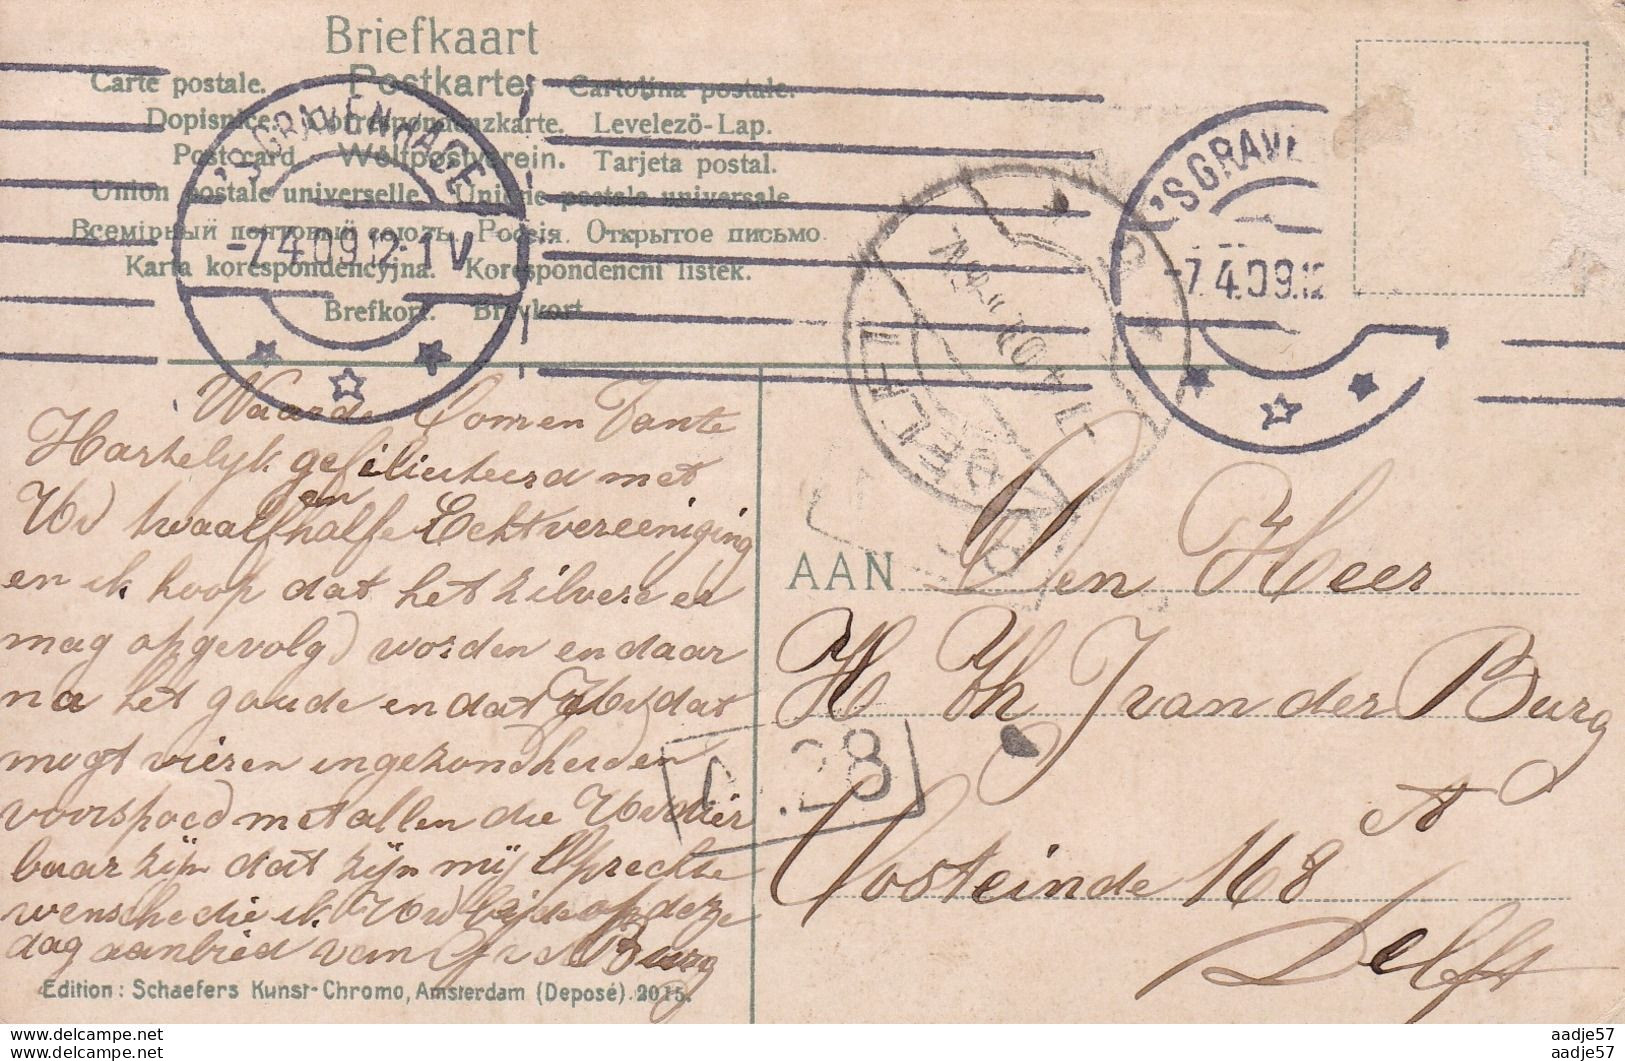 Briefkaart
Carte postale. Postkarte. Cartolina postale.
Dopisnice. Correspondenzkarte. Levelező-Lap.
Post card Weltpostverein. Tarjeta postal.
Union postale universelle. Unione postale universale.
Всемірный почтовый союзъ. Россія. Открытое письмо.
Karta korespondencyjna. Korespondenční lístek.
Brefkort. Brevkort.
'S GRAVENHAGE
-7.4.09.12-1V
'S GRAVE
-7.4.09.12
DELFT
Waarde Oom en Tante
Hartelyk gefeliciteerd met
Uw twaalf en halfe Echtvereeniging
en ik hoop dat het zilvere er
mag opgevolgd worden en daar
na het goude en dat U dat
mogt vieren in gezondheid en
voorspoed met allen die U dier
baar zijn dat zijn mij Oprechte
wensche die ik U bijde op deze
dag aanbied van G v d Burg
C.28
AAN Den Heer
H Th J van der Burg
Oosteinde 168 A
Delft
Edition: Schaefers Kunst-Chromo, Amsterdam (Deposé). 2015.
www.delcampe.net
www.delcampe.net
aadje57
aadje57